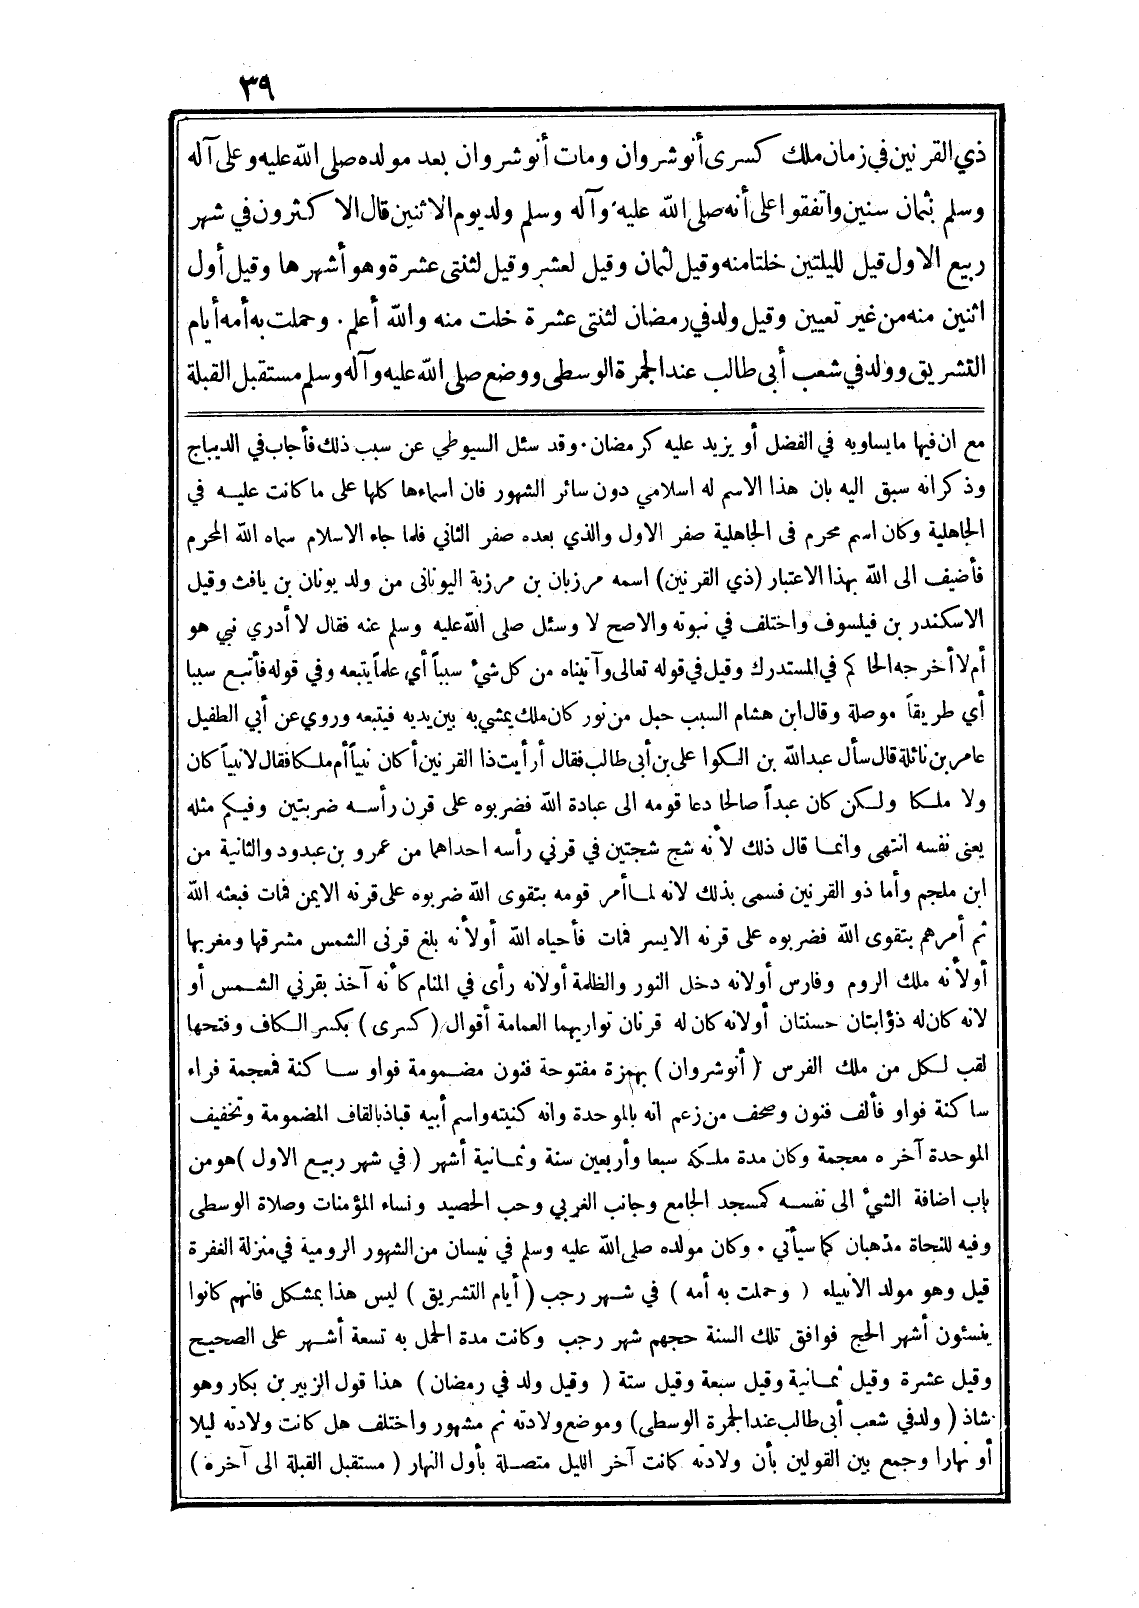 ٣٩
ذي القرنين في زمان ملك كسرى أنوشروان ومات أنوشروان بعد مولده صلى الله عليه وعلى آله
وسلم بثمان سنين واتفقوا على أنه صلى الله عليه وآله وسلم ولد يوم الاثنين قال الاكثرون في شهر
ربيع الاول قيل لليلتين خلتا منه وقيل لثمان وقيل لعشر وقيل لثنتى عشرة وهو أشهرها وقيل أول
اثنين منه من غير تعيين وقيل ولد في رمضان لثنتى عشرة خلت منه والله أعلم . وحملت به أمه أيام
التشريق وولد في شعب أبى طالب عند الجمرة الوسطى ووضع صلى الله عليه وآله وسلم مستقبل القبلة
مع ان فيها ما يساويه في الفضل أو يزيد عليه كرمضان . وقد سئل السيوطي عن سبب ذلك فأجاب في الديباج
وذكر انه سبق اليه بان هذا الاسم له اسلامي دون سائر الشهور فان اسماءها كلها على ما كانت عليه في
الجاهلية وكان اسم محرم فى الجاهلية صفر الاول والذي بعده صفر الثاني فلما جاء الاسلام سماه الله المحرم
فأضيف الى الله بهذا الاعتبار (ذي القرنين) اسمه مرزبان بن مرزبة اليونانى من ولد يونان بن يافث وقيل
الاسكندر بن فيلسوف واختلف في نبوته والاصح لا وسئل صلى الله عليه وسلم عنه فقال لا أدري نبي هو
أم لا أخرجه الحاكم في المستدرك وقيل في قوله تعالى وآتيناه من كل شيء سبباً أي علماً يتبعه وفي قوله فأتبع سببا
أي طريقاً موصلة وقال ابن هشام السبب حبل من نور كان ملك يمشي به بين يديه فيتبعه وروي عن أبي الطفيل
عامر بن نائلة قال سأل عبدالله بن الكوا على بن أبى طالب فقال أرأيت ذا القرنين أكان نبياً أم ملكا فقال لا نبياً كان
ولا ملكا ولكن كان عبداً صالحا دعا قومه الى عبادة الله فضربوه على قرن رأسه ضربتين وفيكم مثله
يعنى نفسه انتهى وانما قال ذلك لأنه شج شجتين في قرني رأسه احداهما من عمرو بن عبدود والثانية من
ابن ملجم وأما ذو القرنين فسمى بذلك لانه لما أمر قومه بتقوى الله ضربوه على قرنه الايمن فمات فبعثه الله
ثم أمرهم بتقوى الله فضربوه على قرنه الايسر فمات فأحياه الله أو لأنه بلغ قرنى الشمس مشرقها ومغربها
أو لأنه ملك الروم وفارس أو لانه دخل النور والظلمة أو لانه رأى في المنام كأنه آخذ بقرني الشمس أو
لانه كان له ذؤابتان حسنتان أو لانه كان له قرنان تواريهما العمامة أقوال (كسرى) بكسر الكاف وفتحها
لقب لكل من ملك الفرس (أنوشروان) بهمزة مفتوحة فنون مضمومة فواو ساكنة فمعجمة فراء
ساكنة فواو فألف فنون وصحف من زعم انه بالموحدة وانه كنيته واسم أبيه قباذ بالقاف المضمومة وتخفيف
الموحدة آخره معجمة وكان مدة ملكه سبعا وأربعين سنة وثمانية أشهر (في شهر ربيع الاول) هو من
باب اضافة الشيء الى نفسه كمسجد الجامع وجانب الغربي وحب الحصيد ونساء المؤمنات وصلاة الوسطى
وفيه للنحاة مذهبان كما سيأتي . وكان مولده صلى الله عليه وسلم في نيسان من الشهور الرومية في منزلة الغفرة
قيل وهو مولد الانبياء (وحملت به أمه) في شهر رجب (أيام التشريق) ليس هذا بمشكل فانهم كانوا
ينسئون أشهر الحج فوافق تلك السنة حجهم شهر رجب وكانت مدة الحمل به تسعة أشهر على الصحيح
وقيل عشرة وقيل ثمانية وقيل سبعة وقيل ستة (وقيل ولد في رمضان) هذا قول الزبير بن بكار وهو
شاذ (ولد في شعب أبى طالب عند الجمرة الوسطى) وموضع ولادته ثم مشهور واختلف هل كانت ولادته ليلا
أو نهارا وجمع بين القولين بأن ولادته كانت آخر الليل متصلة بأول النهار (مستقبل القبلة الى آخره)